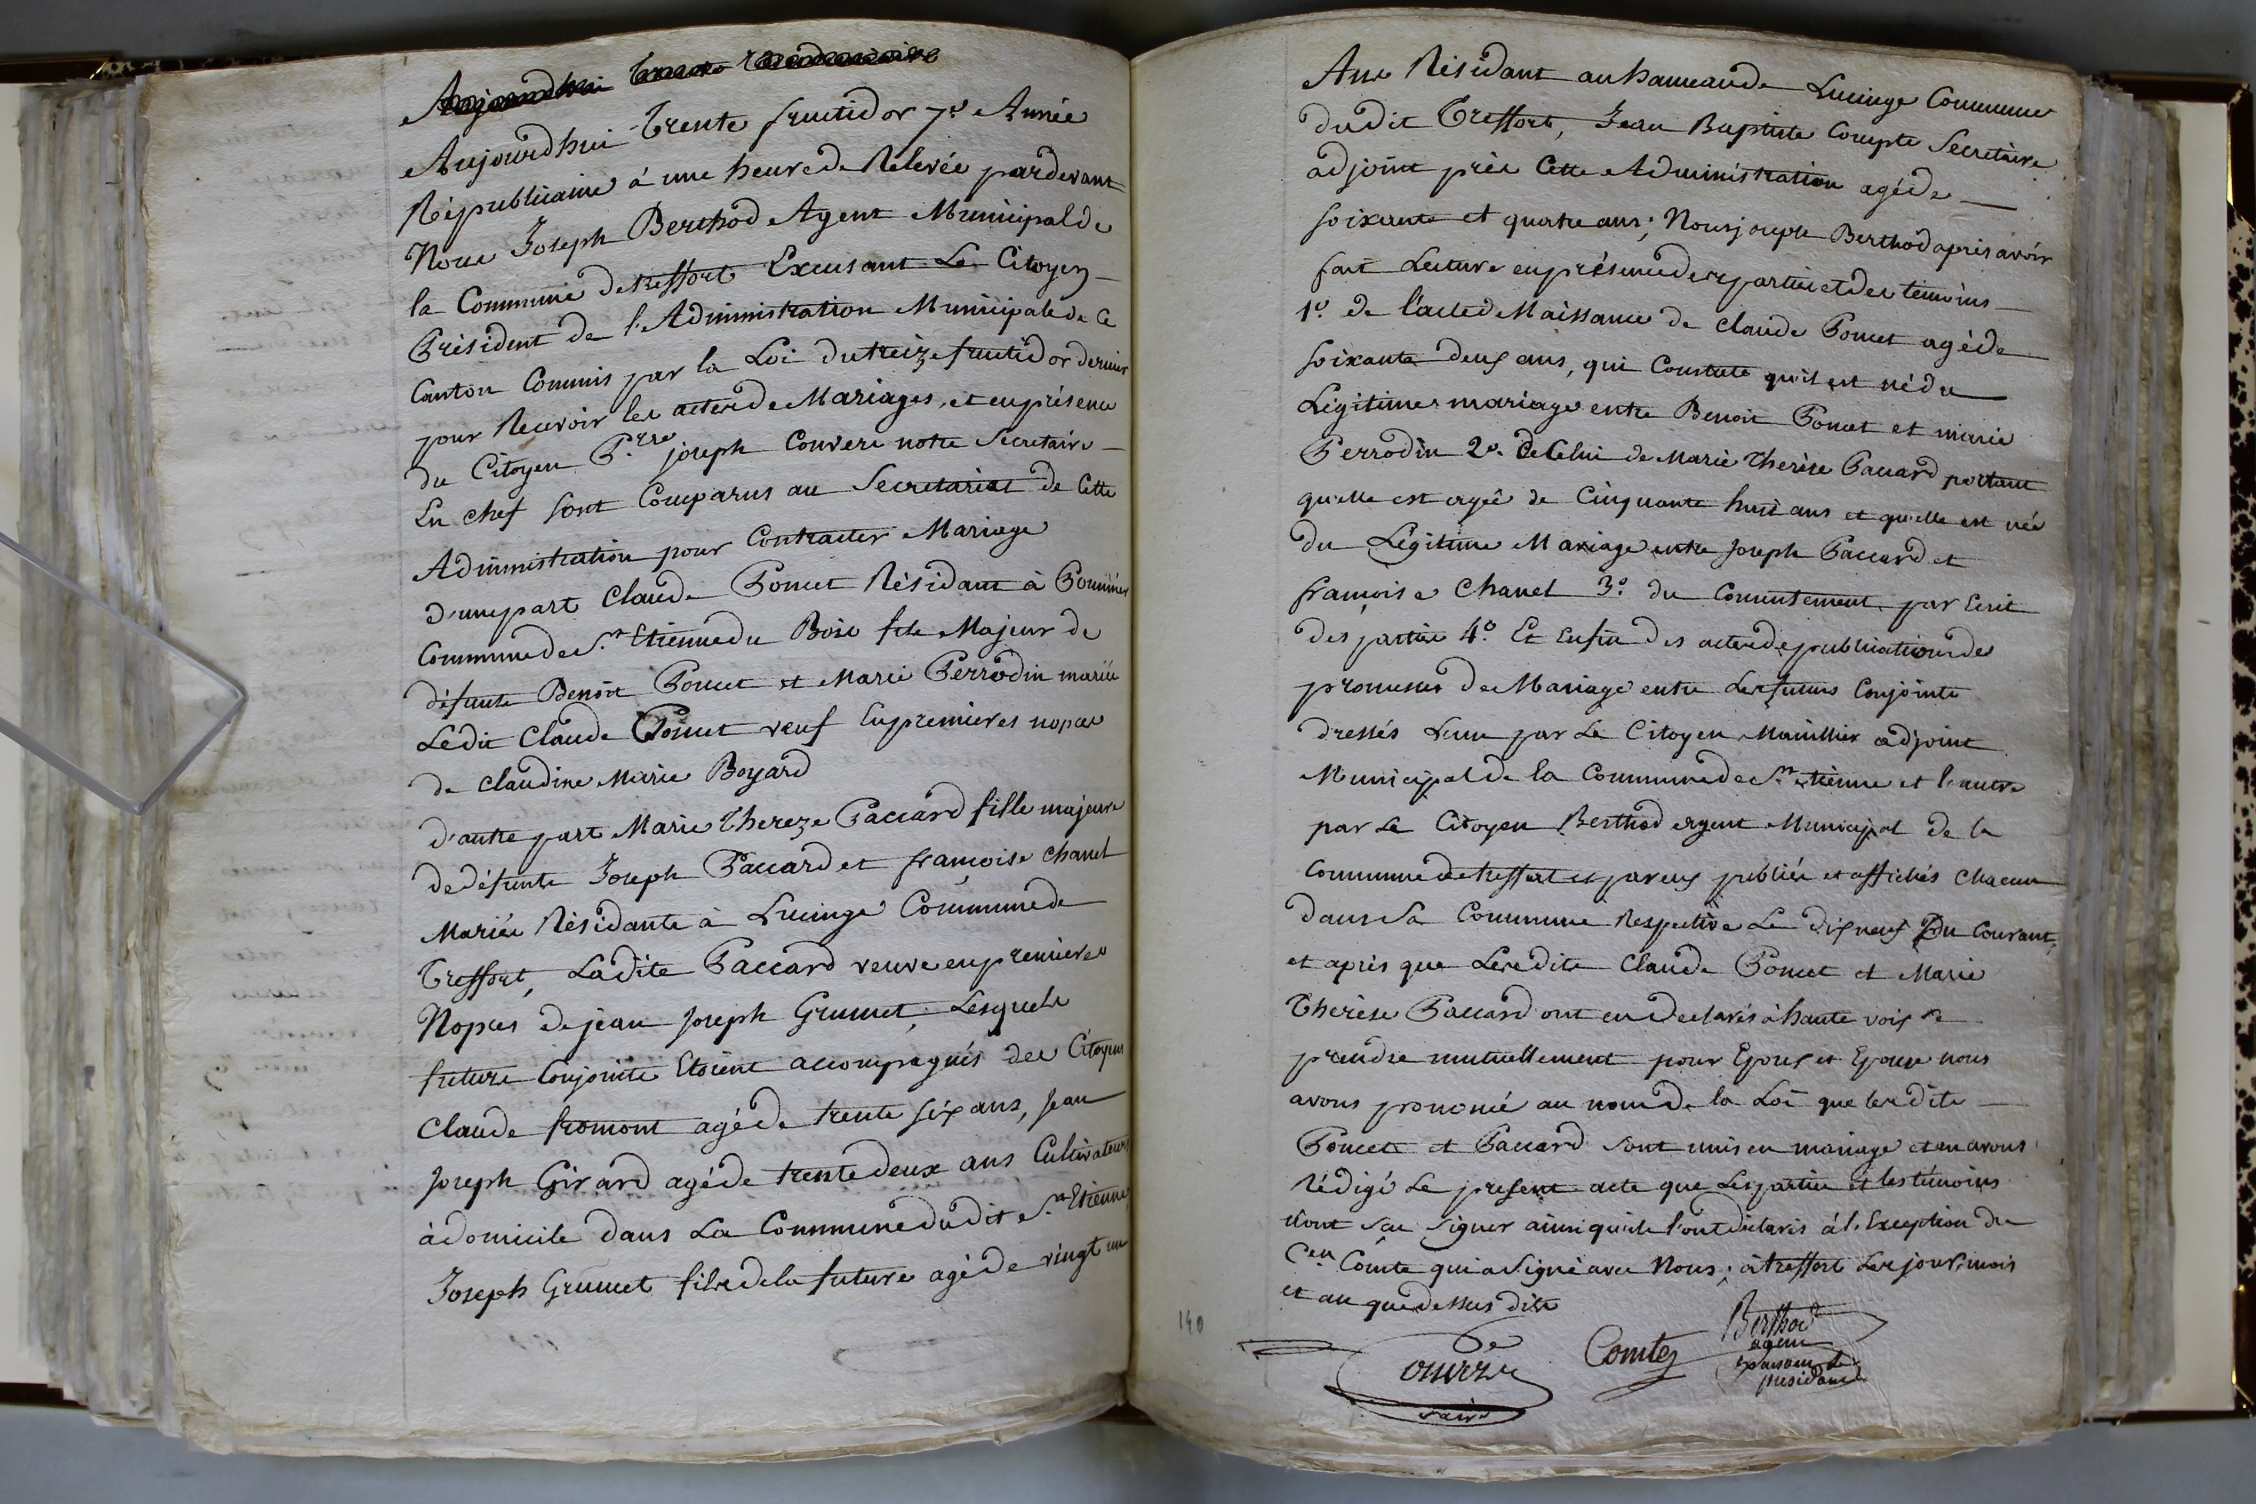 Aujourdhui
Aujourdhui Trente fructidor 7.e Année
Républicaine à une heure de Relevée pardevant
Nous Joseph Berthod Agent Municipal de
la Commune de treffort Excusant Le Citoyen
Président de l'Administration Municipale de Ce
Canton Commis par la Loi du treize fructidor dernier
pour Recevoir les actes de Mariages, et en présence
du Citoyen P.rre joseph Convers notre Secretaire
En chef sont Comparus au Secretariat de Cette
Administration pour Contracter Mariage
D'une part Claude Poncet Résidant à Pommier
Commune de St. Etienne du Bois fils Majeur de
défunts Benoit Poncet et Marie Perrodin mariés
Ledit Claude Poncet veuf En premieres nopces
de claudine Marie Boyard
d'autre part Marie Thereze Paccard fille majeure
de défunts Joseph Paccard et françoise Chanel
Mariés Résidante à Lucinge Commune de
Treffort, Ladite Paccard veuve en premieres
Nopces de jean joseph Grumet, Lesquels
futurs Conjoints Etoient accompagnés des Citoyens
Claude fromont agé de trente six ans, jean
joseph Girard agé de trente deux ans Cultivateurs
à domicile dans La Commune dudit St. Etienne,
Joseph Grumet fils de la future agé de vingt un
Ans Résidant au hameau de Lucinge Commune
dudit Treffort, Jean Baptiste Compte Secretaire
adjoint près Cette Administration agé de
soixante et quatre ans; Nous joseph Berthod après avoir
fait Lecture en présence des parties et des temoins
1.o de l'acte de Naissance de Claude Poncet agé de
soixante deux ans, qui Constate qu'il est né du
Légitime mariage entre Benoit Poncet et marie
Perrodin 2.o de Celui de Marie Therèse Paccard portant
qu'elle est agée de Cinquante huit ans et qu'elle est née
du Légitime Mariage entre joseph Paccard et
françoise Chanel 3.o du Consentement par Ecrit
des parties 4.o Et Enfin des actes de publications des
promesses de Mariage entre Les futurs Conjoints
dressés L'une par Le Citoyen adjoint
Municipal de la Commune de St. etienne et l'autre
par Le Citoyen Berthod agent Municipal de la
Commune de treffort et par eux publiés et affichés Chacun
dans Sa Commune Respective Le dix neuf Du Courant,
et après que Lesdits Claude Poncet et Marie
Therèse Paccard ont eu Declarés à haute voix se
prendre mutuellement pour Epoux et Epouse nous
avons prononcé au nom de la Loi que lesdits
Poncet et Paccard sont unis en mariage et en avons
Rédigé Le present acte que Les parties et les témoins
n'ont scu signer ainsi qu'ils l'ont déclarés à l'Exception du
C.en Comte qui a signé avec Nous; à treffort Les jour, mois
et an que dessus dits
140
Comte
Berthod
agent
president